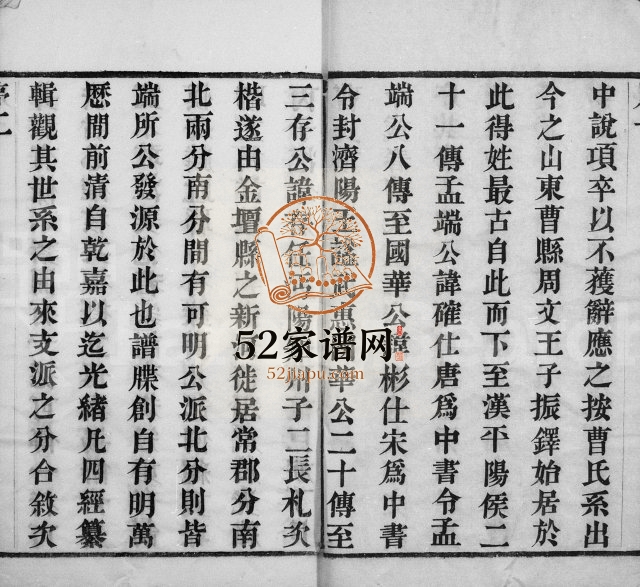 中說項卒以不獲辭應之按曹氏系出
今之山東曹縣周文王子振鐸始居於
此得姓最古自此而下至漢平陽侯二
十一傳孟端公諱確仕唐爲中書令孟
端公八傳至國華公諱彬仕宋爲中書
令封濟陽王謚武惠國華公二十傳至
三存公諱
陽
子二長札次
楷遂由金壇縣之新
徙居常郡分南
北兩分南分間有可明公派北分則皆
端所公發源於此也譜牒創自有明萬
厯間前清自乾嘉以迄光緒凡四經纂
輯觀其世系之由來支派之分合敘次
序二
52家谱网
52jiapu.com